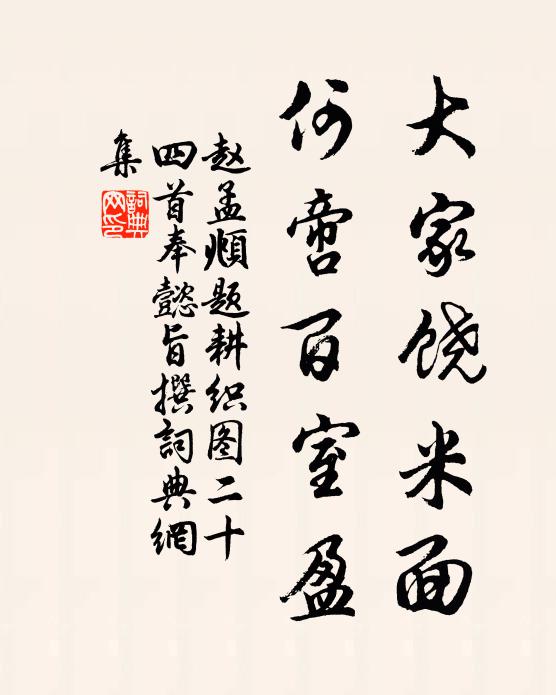 大家饶米面
何啻百室盈
赵孟頫题耕织图二十
四首奉懿旨撰詞典網
集
詞典网印